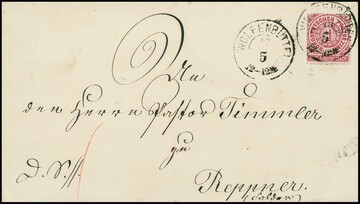 WOLFENBÜTTEL
5
12-1
WOLFENBÜTTEL
5
An
den Herrn Pastor Timmler
zu
Reppner.
(Salder)